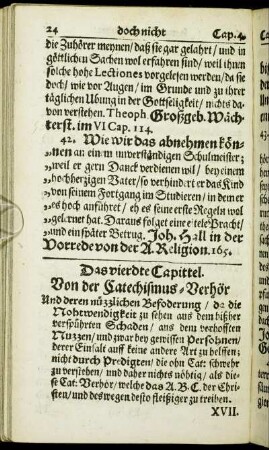 24 doch nicht Cap. 4.
die Zuhörer meynen/ daß sie gar gelahrt/ und in
göttlichen Sachen wol erfahren sind/ weil ihnen
solche hohe Lectiones vorgelesen werden/ da sie
doch/ wie vor Augen/ im Grunde und zu ihrer
täglichen Übung in der Gottseligkeit/ nichts da-
von verstehen. Theoph. Großgeb. Wäch-
terst. im VI Cap. 114.
42. Wie wir das abnehmen kön-
„nen an einem unverständigen Schulmeister;
„weil er gern Danck verdienen wil/ bey einem
„hochherzigen Vater/ so verhindert er das Kind
„von seinem Fortgang im Studieren/ in dem er
„es hoch aufführet/ eh es seine erste Regeln wol
„gelernet hat. Daraus folget eine Pracht/
„und ein später Betrug. Joh. Hall in der
Vorrede von der A. Religion. 165.
Das vierdte Capittel.
Von der Catechismus-Verhör
Und deren nüzzlichen Beforderung/ da die
Nohtwendigkeit zu sehen aus dem bißher
verspührten Schaden/ aus dem verhofften
Nuzzen/ und zwar bey gewissen Persohnen/
derer Einfalt auff keine andere Art zu helffen;
nicht durch Predigten/ die ohn Cat: schwehr
zu verstehen/ und daher nichts nöhtig/ als die-
se Cat: Verhör/ welche das A. B. C. der Chri-
sten/ und deswegen desto fleißiger zu treiben.
XVII.